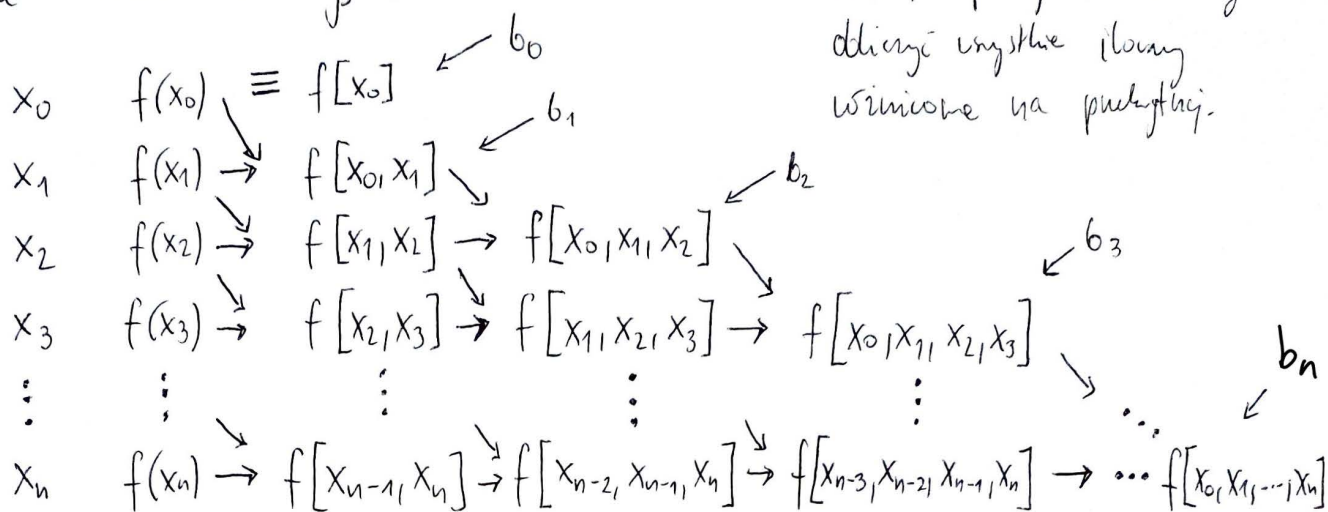 obliczyć wszystkie ilorazy
różnicowe na przekątnej.
x₀ f(x₀) ≡ f[x₀] ↙ b₀
x₁ f(x₁) → f[x₀, x₁] ↙ b₁
x₂ f(x₂) → f[x₁, x₂] → f[x₀, x₁, x₂] ↙ b₂
x₃ f(x₃) → f[x₂, x₃] → f[x₁, x₂, x₃] → f[x₀, x₁, x₂, x₃] ↙ b₃
⋮ ⋮ ⋮ ⋮ ⋮ ⋱ ↙ bₙ
xₙ f(xₙ) → f[xₙ₋₁, xₙ] → f[xₙ₋₂, xₙ₋₁, xₙ] → f[xₙ₋₃, xₙ₋₂, xₙ₋₁, xₙ] → ... f[x₀, x₁, ..., xₙ]